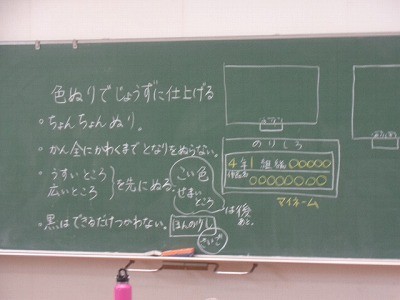 色ぬりでじょうずに仕上げる
・ちょんちょんぬり。
・かん全にかわくまでとなりをぬらない。
・うすいところ
広いところ
を先にぬる。
こい色
せまい
ところ
は後
あと。
・黒はできるだけつかわない。
ほんのすこし
さいご
のりしろ
4年1組
○○○○○
作品名
○○○○○○○○
マイネーム